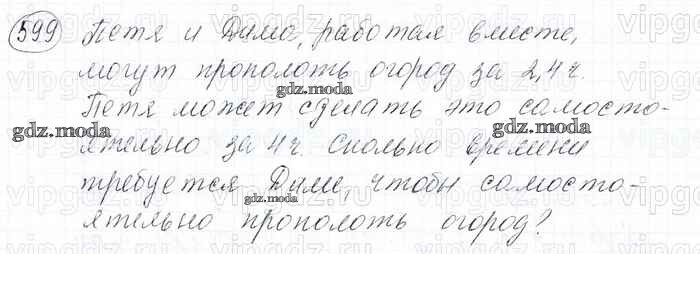 599 Петя и Дима, работая вместе,
могут прополоть огород за 2,4 ч.
Петя может сделать это самосто-
ятельно за 4 ч. Сколько времени
требуется Диме, чтобы самосто-
ятельно прополоть огород?
gdz.moda
gdz.moda
gdz.moda
gdz.moda
vipgdz.ru